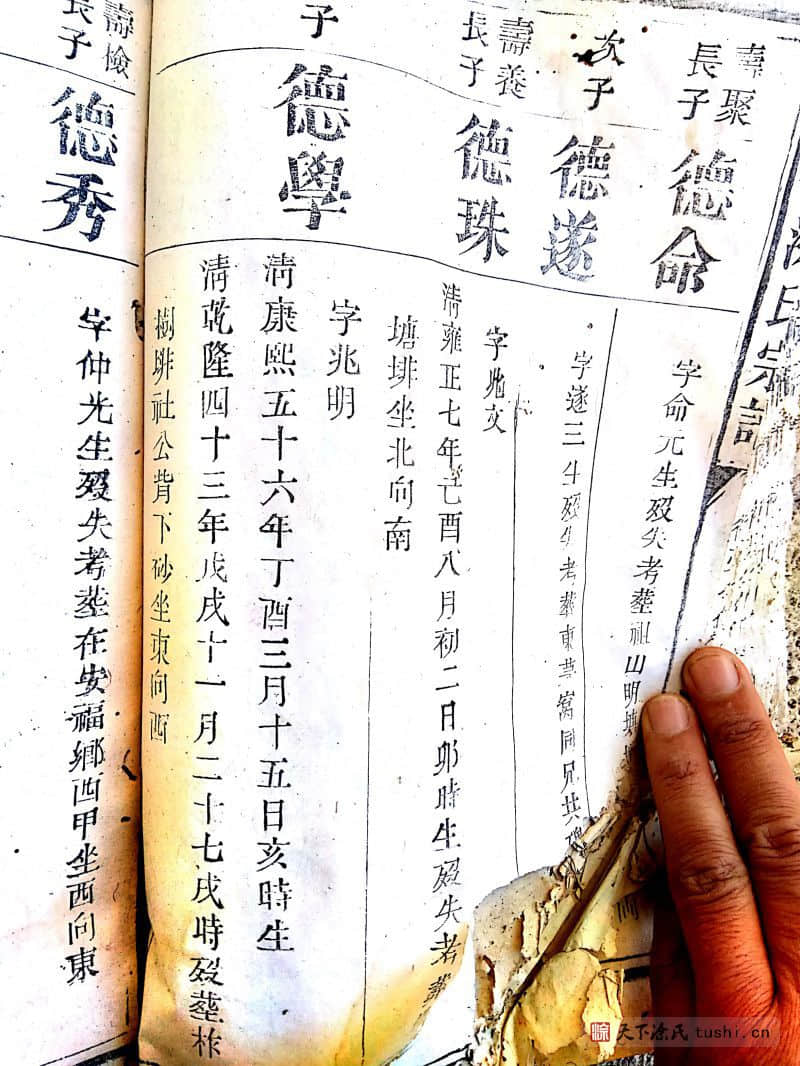 氏宗譜
壽聚
長子
德命
字命元生歿失考葬祖山明塘
向
次子
德遂
字遂三生歿失考葬東華窩同兄共
壽養
長子
德珠
字兆文
清雍正七年己酉八月初二日卯時生歿失考葬
塘排坐北向南
子
德學
字兆明
清康熙五十六年丁酉三月十五日亥時生
清乾隆四十三年戊戌十一月二十七戌時歿葬柞
樹排社公背下砂坐東向西
壽儉
長子
德秀
字仲光生歿失考葬在安福鄉西甲坐西向東
天下涂氏 tushi.cn